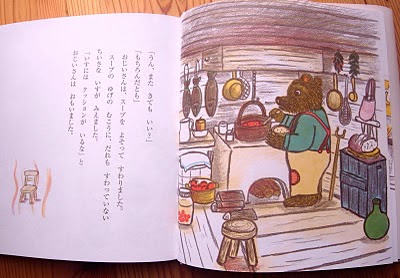 「うん、また きても いい？」
「もちろんだとも」
おじいさんは、スープを よそって すわりました。
スープの ゆげの むこうに、だれも すわっていない
ちいさな いすが みえました。
「いすには クッションが いるな」と
おじいさんは おもいました。